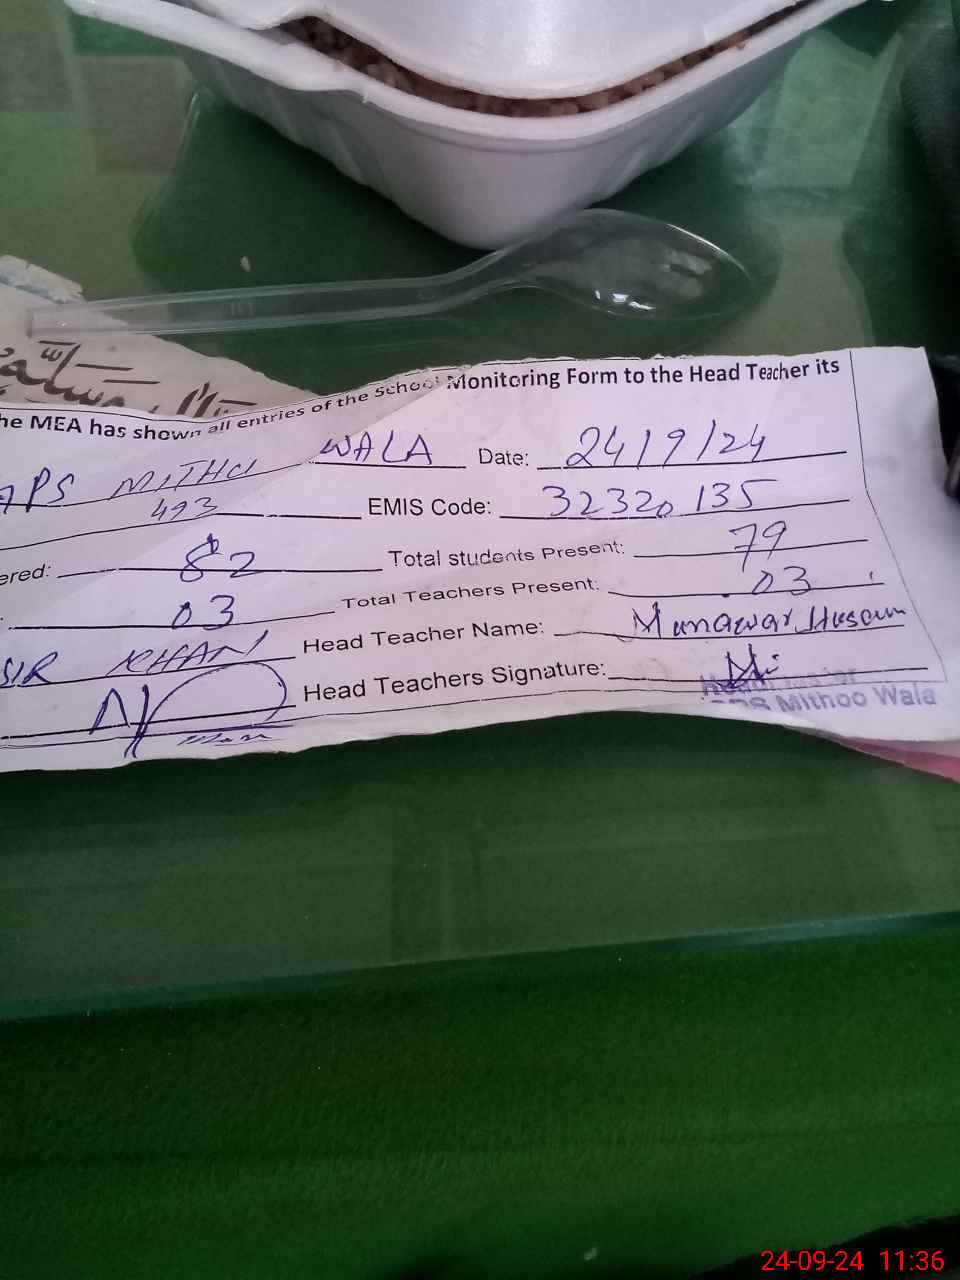 he MEA has shown all entries of the School Monitoring Form to the Head Teacher its
APS MITHU WALA Date: 24/9/24
493 EMIS Code: 32320135
ered: 82 Total students Present: 79
03 Total Teachers Present: 03
SIR KHAN Head Teacher Name: Munawar Husain
Head Teachers Signature:
Mithoo Wala
24-09-24 11:36